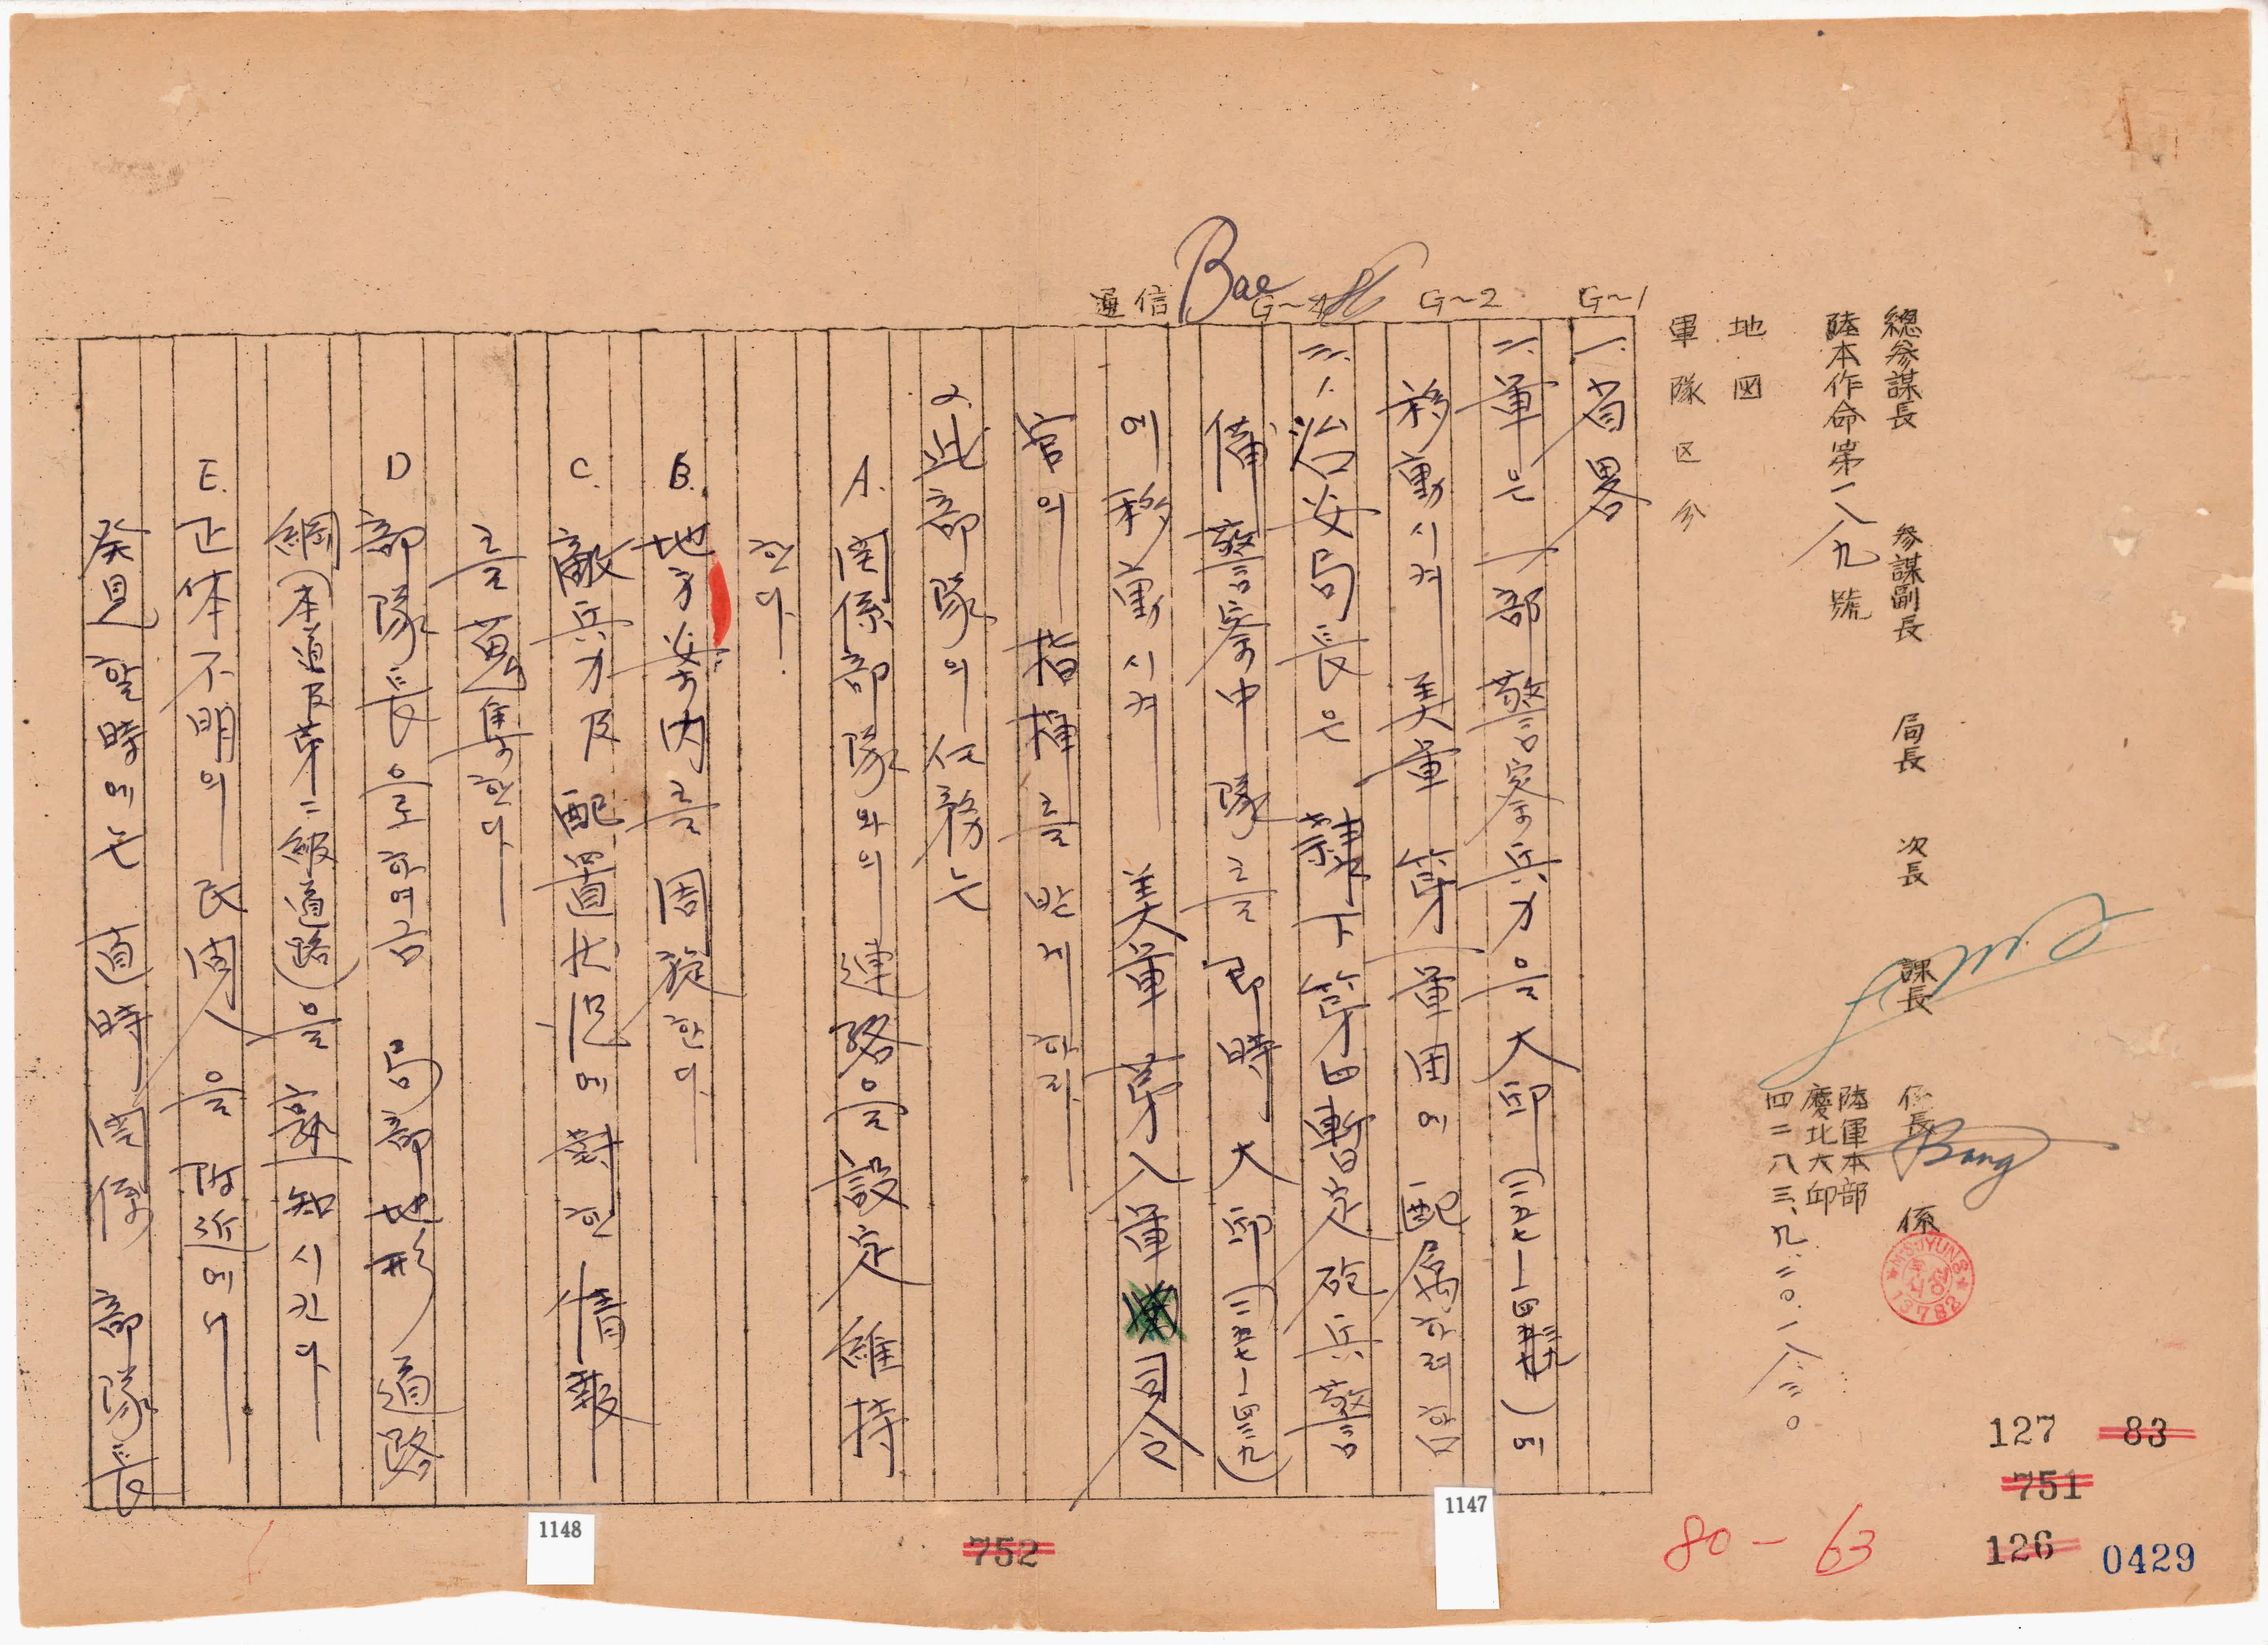 總參謀長 參謀副長 局長 次長 課長 係長 係
Bang
陸本作命第一八九號
陸軍本部
慶北大邱
四二八三、九、二〇、一八三〇
地図
軍隊区分
G~1
G~2
G~4
Bae
通信
一. 省畧
二. 軍은 一部 警察兵力을 大邱
移動시켜 美軍 第一軍団에 配属하려 함
三. 1. 治安局長은 隷下 第四暫定砲兵警
備警察中隊를 即時 大邱
에 移動시켜 美軍 第八軍 司令
官의 指揮를 받게 하라
2. 此部隊의 任務는
A. 関係部隊와의 連絡을 設定維持
한다.
B. 地方案内를 周旋한다
C. 敵兵力及配置状況에 對한 情報
를 蒐集한다
D 部隊長으로 하여금 局部地形 道路
網(本道及第二級道路)을 熟知시킨다
E. 正体不明의 民間人을 附近에서
発見할 時에는 適時 関係 部隊長
MS JYUNG
13782
127
83
751
126
0429
80-63
1147
752
1148